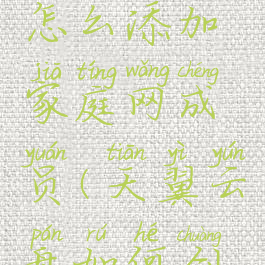 怎么添加
jiā tíng wǎng chéng
家庭网成
yuán tiān yì yún
员(天翼云
pán rú hé chuàng
盘如何创